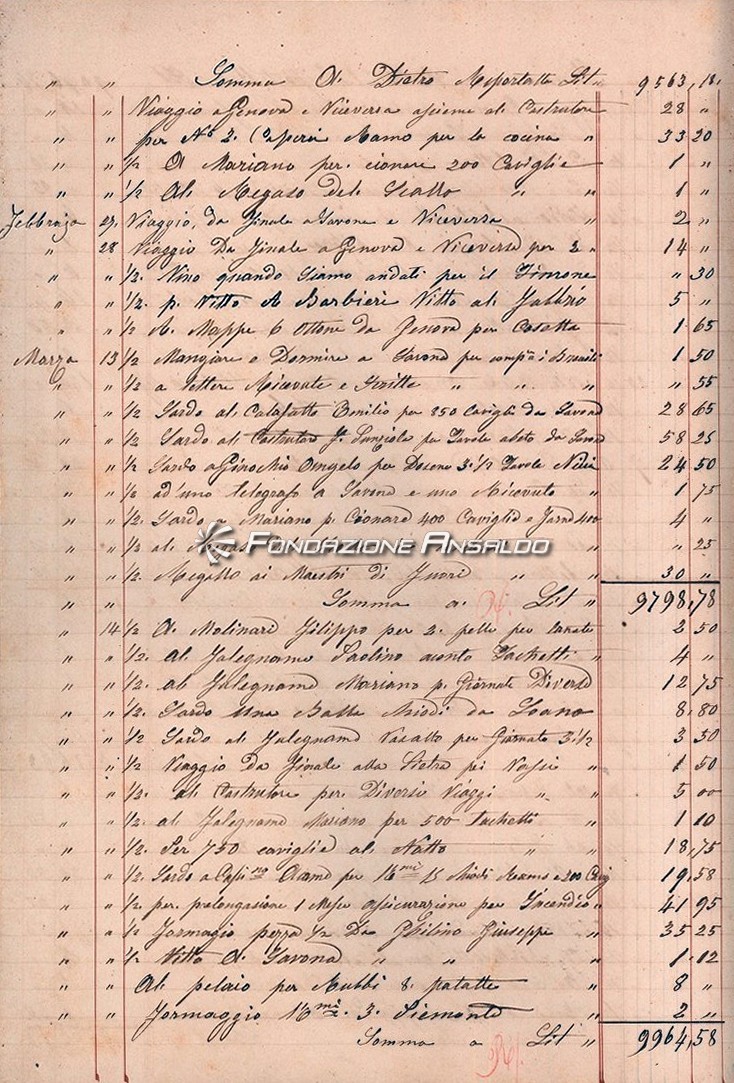 " " Somma A Dietro Riportatta Lit " 9563,18
" " Viaggio a Genova e Viceversa assieme al Costrutore 28 "
" " per No 2. Operai Ramo per la cocina " 33 20
" " 1/2 A Mariano per 200 Caviglie 1 "
" " 1/2 Al Regaso del Scallo " " 1 "
Febbrajo 27. Viaggio, da Finale a Savona e Viceversa " 2 "
" 28 Viaggio Da Finale a Genova e Viceversa per 2 " 14 "
" " 1/2. Nino quando Siamo andati per il Timone " 30
" " 1/2. p. Vitto A Barbieri Vitto al Fabbro 5 "
" " 1/2 A. Mappe 6 Ottone da Genova per Casetta 1 65
Marzo 13 1/2 Mangiare e Dormire a Savona per 1 50
" " 1/2 a lettere Ricevute e Scritte " " " " 55
" " 1/2 Saldo al Calafatto Emilio per 850 Caviglie da Savona 28 65
" " 1/2 Saldo al Costrutore per Tavole da 58 25
" " 1/2 Saldo a Ginochio Angelo per Doseno 3.1/2 Tavole 24 50
" " 1/2 ad'uno telegrafo a Savona e uno Ricevuto " 1 75
" " 1/2. Saldo a Mariano p. 400 Caviglie e 400 4 "
" " 1/2 al " 25
FONDAZIONE ANSALDO
" " 1/2. Regallo ai Maestri di Fuori " " 30 "
" " Somma a. Lit " 9798,78
" 14 1/2 A Molinari Filippo per 2. pelle per 2 50
" " 1/2. al Falegname Paolino Tachetti " 4 "
" " 1/2. al Falegname Mariano p. Giornate Diverse 12 75
" " 1/2. Saldo una Balla Chiodi da Loano 8. 80
" " 1/2 Saldo al Falegname Vasallo per Giornate 3 1/2 3 50
" " 1/2 Viaggio da Finale alla Pietra pei 1 50
" " 1/2. al Costrutore per. Diversi Viaggi " " 5 00
" " 1/2. al Falegname Mariano per 500 Tachetti " 1 10
" " 1/2. Per 750 caviglie al " " 18,75
" " 1/2. Saldo a per 15 Chiodi Ramo e 300 19,58
" " 1/2 per. prolongasione 1 Mese assicurazione per Incendio " 41 95
" " 1/2 Formagio pezza 1/2 Da Ghilino Giuseppe " 35 25
" " 1/2 Vitto A. Savona " " " 1.12
" " Al pelaio per Rubbi 8. patatte " 8 "
" " Formaggio 3. Piemonte " 2 "
Somma a Lit " 9964,58